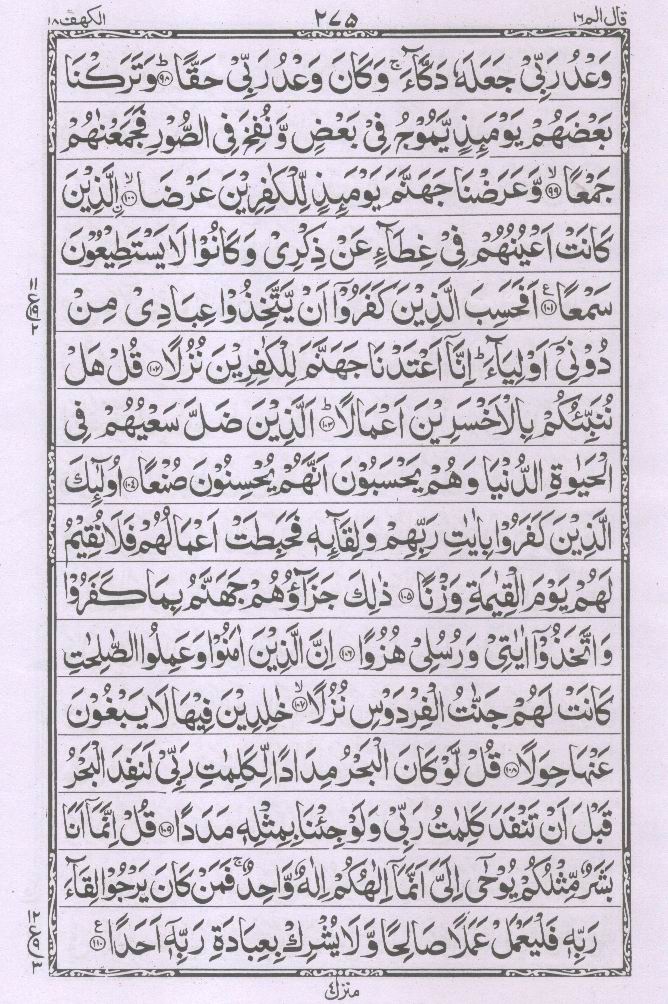 قال الم ١٦ ٢٧٥ الكهف ١٨
وَعْدُ رَبِّیْ جَعَلَهٗ دَكَّآءَ ۚ وَكَانَ وَعْدُ رَبِّیْ حَقًّا ؕ﴿۹۸﴾ وَتَرَكْنَا
بَعْضَهُمْ یَوْمَىِٕذٍ یَّمُوْجُ فِیْ بَعْضٍ وَّنُفِخَ فِی الصُّوْرِ فَجَمَعْنٰهُمْ
جَمْعًا ۙ﴿۹۹﴾ وَّعَرَضْنَا جَهَنَّمَ یَوْمَىِٕذٍ لِّلْكٰفِرِیْنَ عَرْضَا ۙ﴿۱۰۰﴾ ِ۟الَّذِیْنَ
كَانَتْ اَعْیُنُهُمْ فِیْ غِطَآءٍ عَنْ ذِكْرِیْ وَكَانُوْا لَا یَسْتَطِیْعُوْنَ
سَمْعًا ﴿۱۰۱﴾ۧ اَفَحَسِبَ الَّذِیْنَ كَفَرُوْۤا اَنْ یَّتَّخِذُوْا عِبَادِیْ مِنْ
دُوْنِیْۤ اَوْلِیَآءَ ؕ اِنَّاۤ اَعْتَدْنَا جَهَنَّمَ لِلْكٰفِرِیْنَ نُزُلًا ﴿۱۰۲﴾ قُلْ هَلْ
نُنَبِّئُكُمْ بِالْاَخْسَرِیْنَ اَعْمَالًا ؕ﴿۱۰۳﴾ اَلَّذِیْنَ ضَلَّ سَعْیُهُمْ فِی
الْحَیٰوةِ الدُّنْیَا وَهُمْ یَحْسَبُوْنَ اَنَّهُمْ یُحْسِنُوْنَ صُنْعًا ﴿۱۰۴﴾ اُولٰٓىِٕكَ
الَّذِیْنَ كَفَرُوْا بِاٰیٰتِ رَبِّهِمْ وَلِقَآىِٕهٖ فَحَبِطَتْ اَعْمَالُهُمْ فَلَا نُقِیْمُ
لَهُمْ یَوْمَ الْقِیٰمَةِ وَزْنًا ﴿۱۰۵﴾ ذٰلِكَ جَزَآؤُهُمْ جَهَنَّمُ بِمَا كَفَرُوْا
وَاتَّخَذُوْۤا اٰیٰتِیْ وَرُسُلِیْ هُزُوًا ﴿۱۰۶﴾ اِنَّ الَّذِیْنَ اٰمَنُوْا وَعَمِلُوا الصّٰلِحٰتِ
كَانَتْ لَهُمْ جَنّٰتُ الْفِرْدَوْسِ نُزُلًا ۙ﴿۱۰۷﴾ خٰلِدِیْنَ فِیْهَا لَا یَبْغُوْنَ
عَنْهَا حِوَلًا ﴿۱۰۸﴾ قُلْ لَّوْ كَانَ الْبَحْرُ مِدَادًا لِّكَلِمٰتِ رَبِّیْ لَنَفِدَ الْبَحْرُ
قَبْلَ اَنْ تَنْفَدَ كَلِمٰتُ رَبِّیْ وَلَوْ جِئْنَا بِمِثْلِهٖ مَدَدًا ﴿۱۰۹﴾ قُلْ اِنَّمَاۤ اَنَا
بَشَرٌ مِّثْلُكُمْ یُوْحٰۤی اِلَیَّ اَنَّمَاۤ اِلٰهُكُمْ اِلٰهٌ وَّاحِدٌ ۚ فَمَنْ كَانَ یَرْجُوْا لِقَآءَ
رَبِّهٖ فَلْیَعْمَلْ عَمَلًا صَالِحًا وَّلَا یُشْرِكْ بِعِبَادَةِ رَبِّهٖۤ اَحَدًا ﴿۱۱۰﴾ۧ
١١ ع ٢
١٢ ع ٩ ٣
منزل ٤